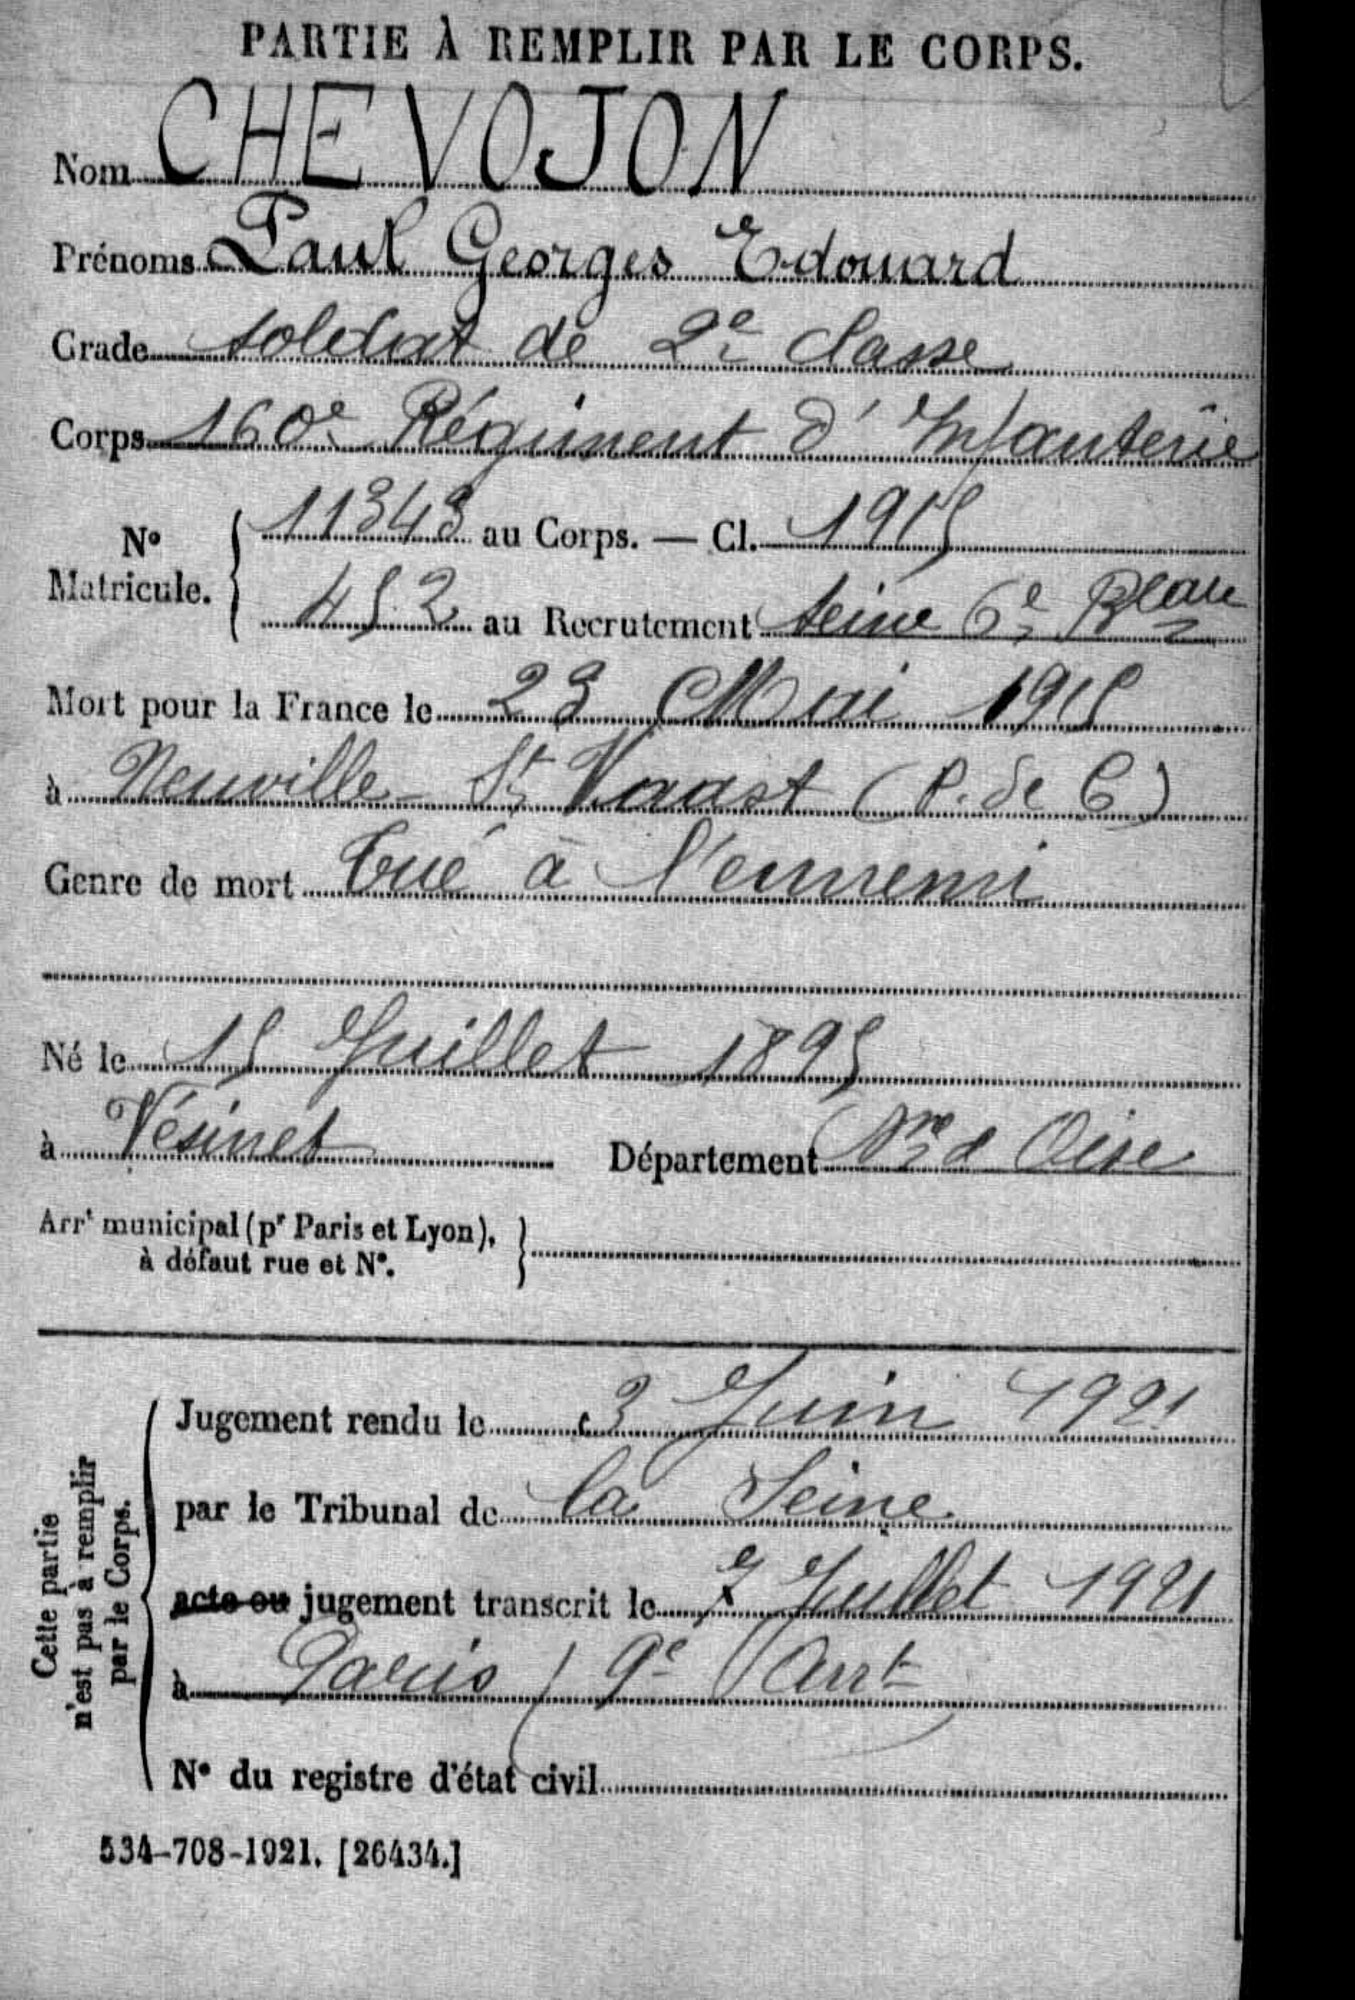 PARTIE À REMPLIR PAR LE CORPS.
Nom CHEVOJON
Prénoms Paul Georges Edouard
Grade soldat de 2e classe
Corps 160e Régiment d'Infanterie
No Matricule. { 11343 au Corps. — Cl. 1915
452 au Recrutement Seine 6e Beau
Mort pour la France le 23 Mai 1915
à Neuville-St Vaast (P. de C)
Genre de mort Tué à l'ennemi
Né le 15 Juillet 1895
à Vésinet Département Sne & Oise
Arrt municipal (pr Paris et Lyon), }
à défaut rue et No.
Cette partie
n'est pas à remplir
par le Corps.
Jugement rendu le 3 Juin 1921
par le Tribunal de la Seine
acte ou jugement transcrit le 7 Juillet 1921
à Paris (9e Arrt
No du registre d'état civil
534-708-1921. [26434.]